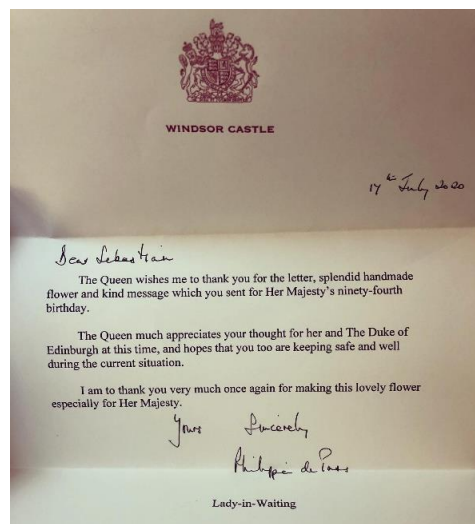 WINDSOR CASTLE
17th July 2020
Dear Sebastian
The Queen wishes me to thank you for the letter, splendid handmade
flower and kind message which you sent for Her Majesty's ninety-fourth
birthday.
The Queen much appreciates your thought for her and The Duke of
Edinburgh at this time, and hopes that you too are keeping safe and well
during the current situation.
I am to thank you very much once again for making this lovely flower
especially for Her Majesty.
Yours Sincerely
Philippa de Pass
Lady-in-Waiting